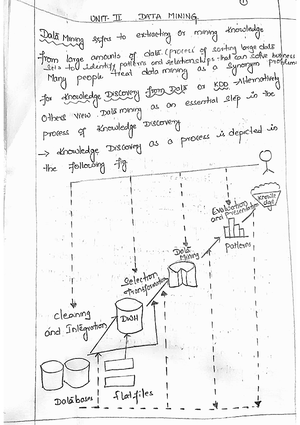 ①
UNIT-II DATA MINING
Data Mining refers to extracting or mining knowledge
from large amounts of data (process of sorting large data
sets to identify patterns and relationships that can solve business problems
Many people treat data mining as a synonym
for Knowledge Discovery from Data or KDD. Alternatively
others view Data mining as an essential step in the
process of Knowledge Discovery
→ Knowledge Discovery as a process is depicted in
the following fig
Knowledge
Evaluation
and Presentation
Patterns
Data
Mining
Selection
Transformation
DWH
Cleaning
and Integration
Databases
flat files